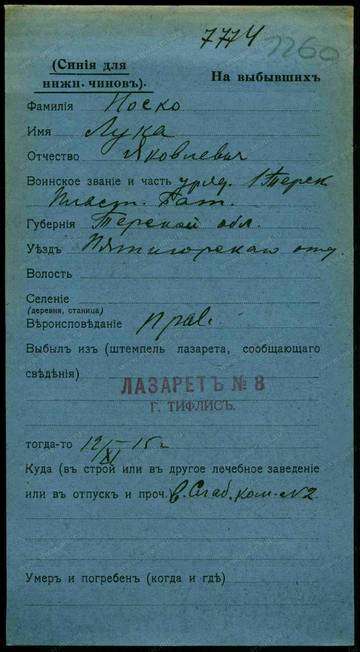 7774 1260
(Синія для
нижн. чиновъ).
На выбывшихъ
Фамилія Носко
Имя Лука
Отчество Яковлевич
Воинское званіе и часть уряд. 1 Терск
Пласт. Бат.
Губернія Терской обл.
Уѣздъ Пятигорскаго отд
Волость
Селеніе
(деревня, станица)
Вѣроисповѣданіе Прав.
Выбылъ изъ (штемпель лазарета, сообщающаго
свѣдѣнія)
ЛАЗАРЕТЪ № 8
Г. ТИФЛИСЪ.
тогда-то 12/XI 15 г
Куда (въ строй или въ другое лечебное заведеніе
или въ отпускъ и проч. в. Слаб. ком. №2
Умеръ и погребенъ (когда и гдѣ)